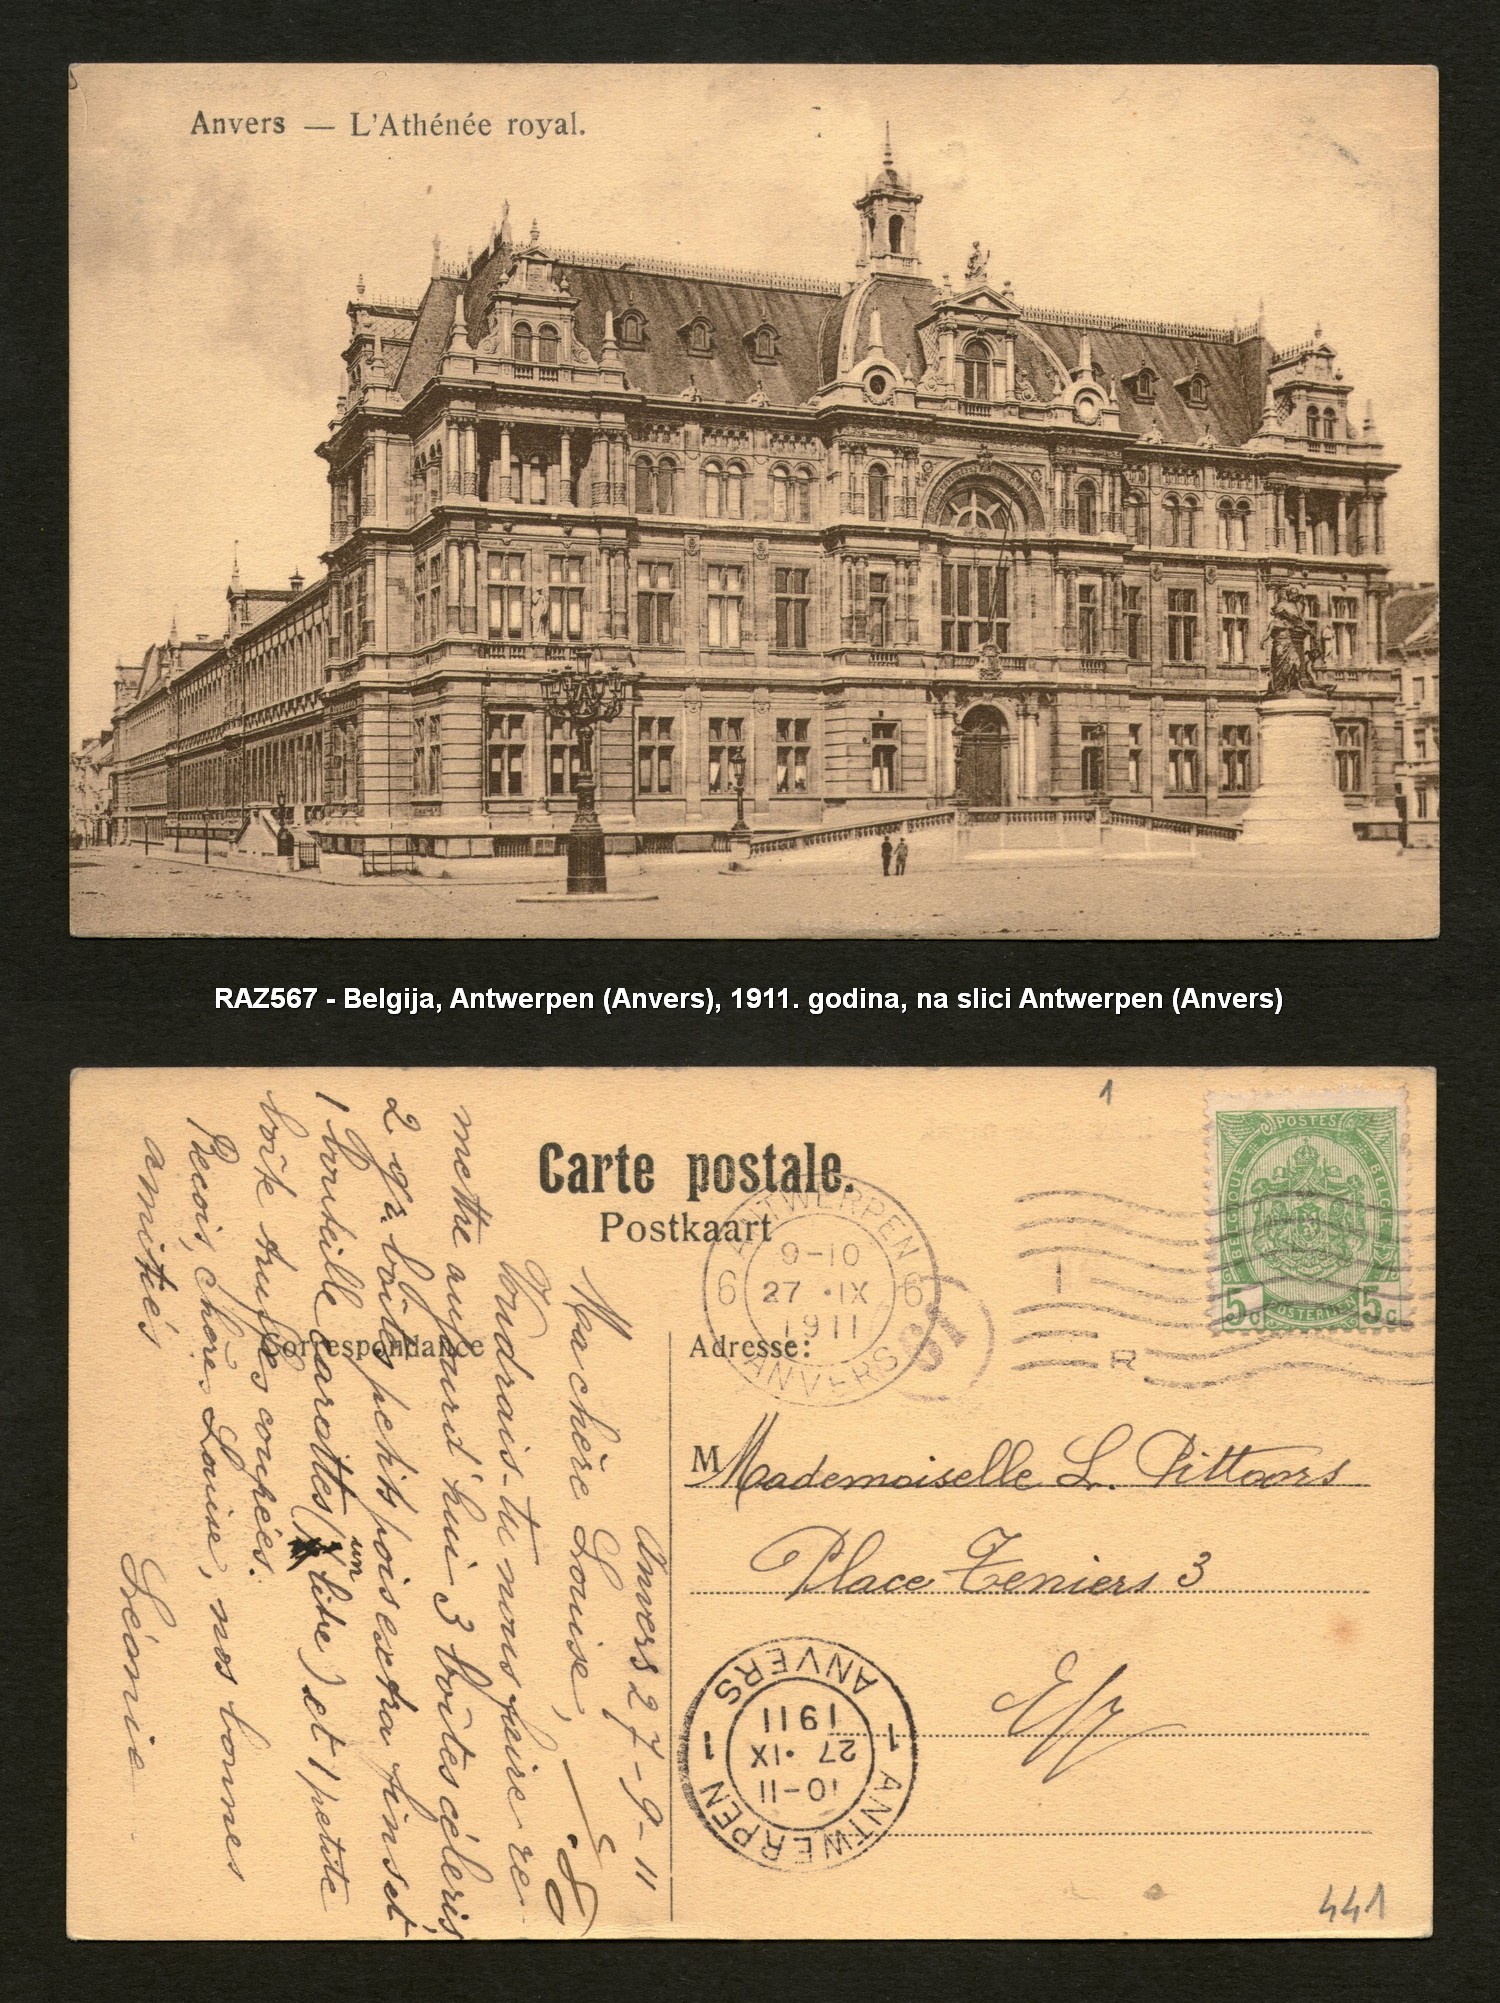 Anvers — L'Athénée royal.
RAZ567 - Belgija, Antwerpen (Anvers), 1911. godina, na slici Antwerpen (Anvers)
1
Carte postale.
Postkaart
POSTES
BELGIQUE
BELGIË
5c POSTERIJEN 5c
ANTWERPEN
6 9-10 6
27 · IX
1911
ANVERS
61
R
Correspondance
Adresse:
Anvers 27-9-11
Ma chère Louise,
Voudrais-tu nous faire re-
mettre aujourd'hui 3 boîtes céleris
2 gr. boîtes petits pois extra fins et
1 bouteille carottes (un litre) et 1 petite
boîte truffes coupées.
Reçois, chère Louise, nos bonnes
amitiés
Léonie
M Mademoiselle L. Pittoors
Place Teniers 3
E/V
1 ANTWERPEN 1
10-11
27 · IX
1911
ANVERS
441